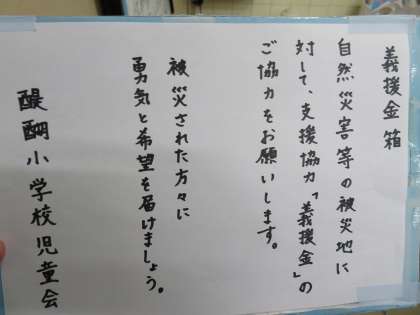 義援金箱
自然災害等の被災地に
対して、支援協力「義援金」の
ご協力をお願いします。
被災された方々に
勇気と希望を届けましょう。
醍醐小学校児童会